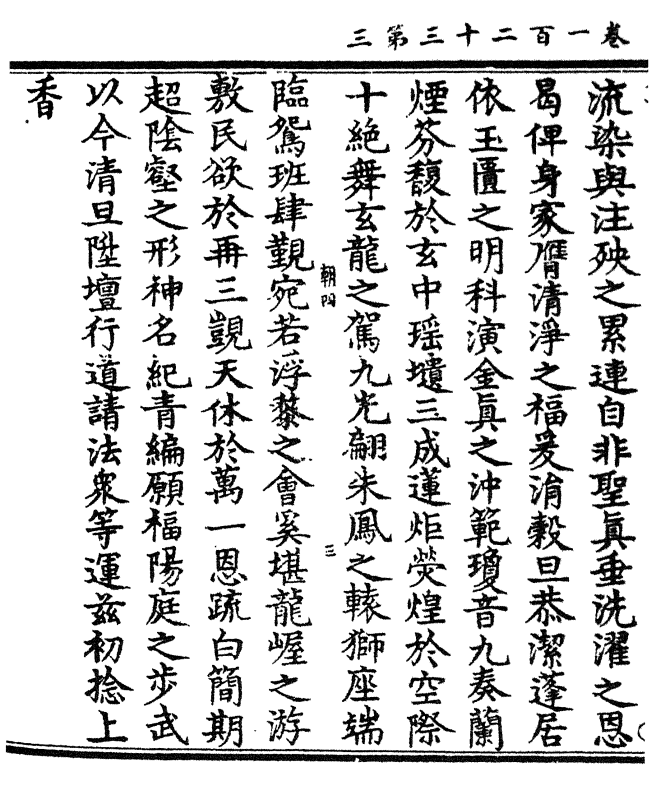 卷一百二十三第三
流染與注殃之累連自非聖眞垂洗濯之恩
曷俾身家膺清淨之福爰涓穀旦恭潔蓬居
依玉匱之明科演金眞之沖範瓊音九奏蘭
煙芬馥於玄中瑶壇三成蓮炬熒煌於空際
十絶舞玄龍之駕九光翩朱鳳之轅獅座端
朝四
三
臨鴛班肆覲宛若浮藜之會奚堪龍幄之游
敷民欲於再三覬天休於萬一恩䟽白簡期
超陰壑之形神名紀青編願福陽庭之步武
以今清旦陞壇行道請法衆等運兹初捻上
香